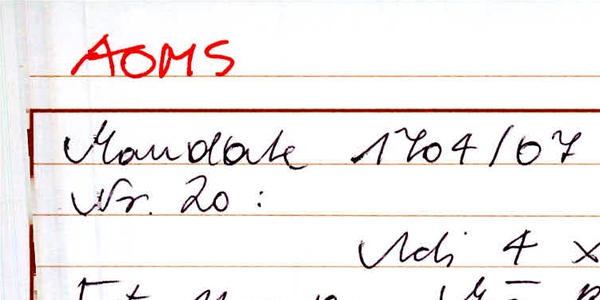 AOMS
Mandate 1704/07
Nr. 20:
Adi 4 x